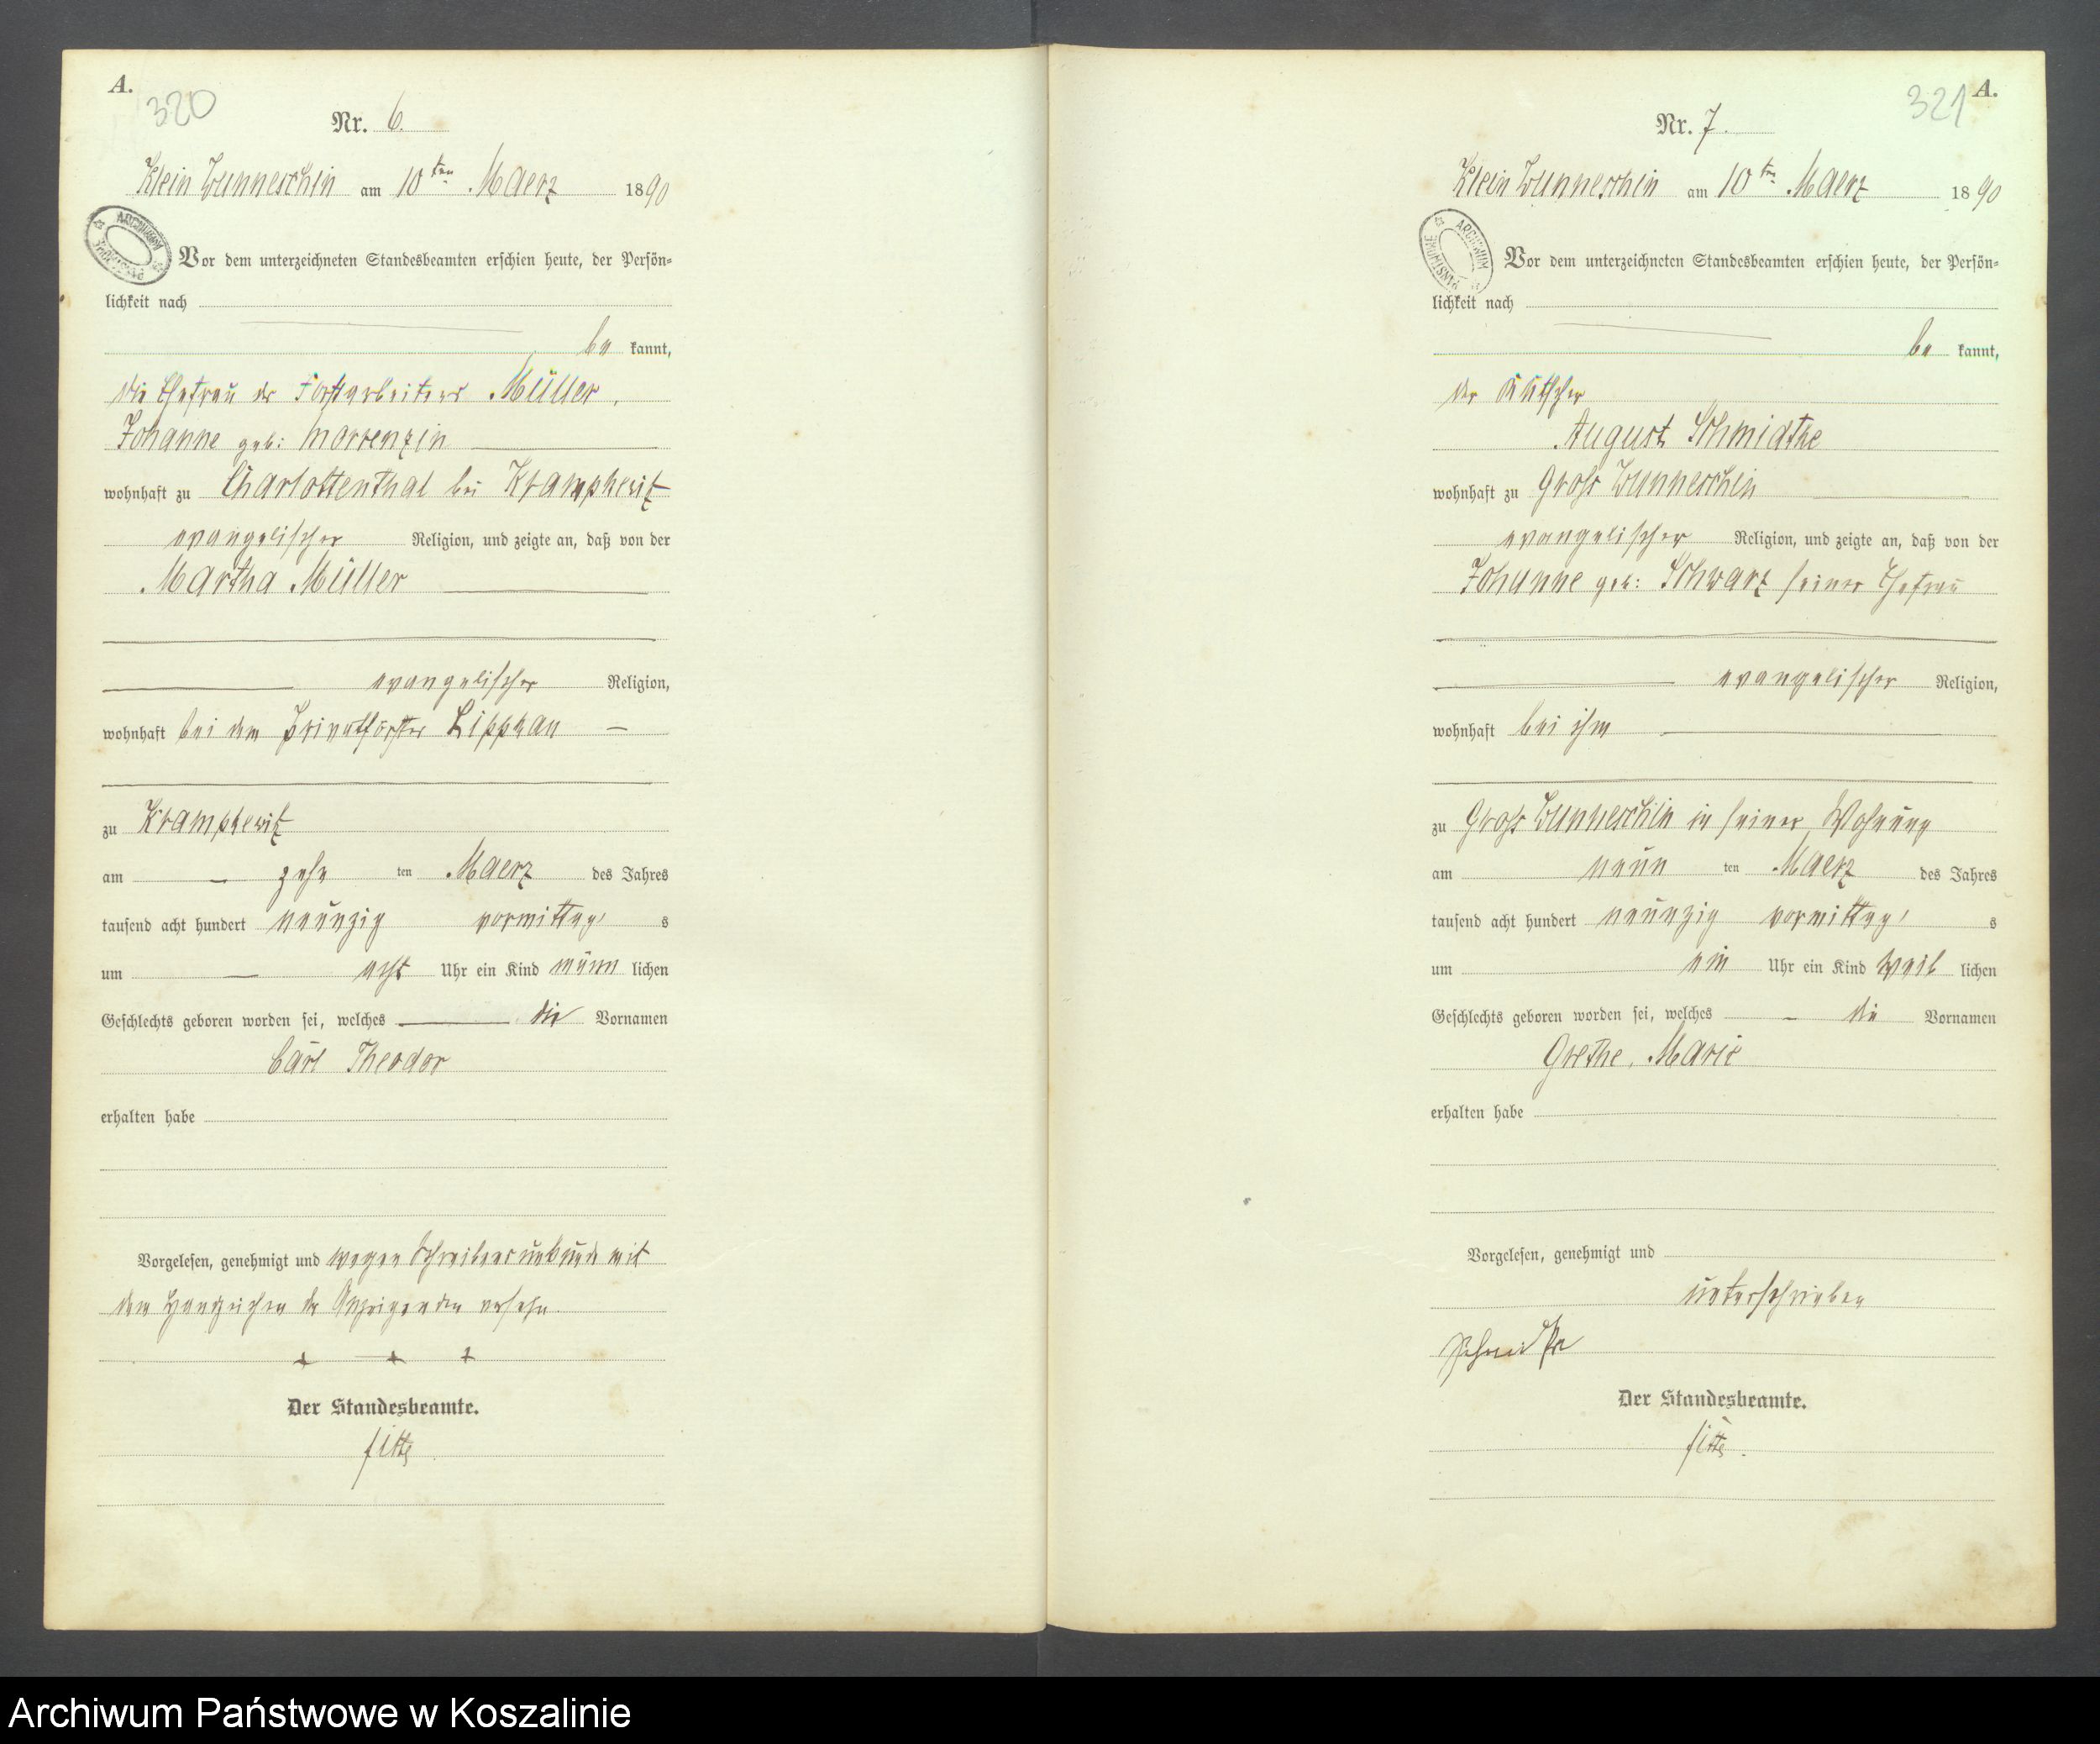 A.
320
Nr. 6.
Klein Wunneschin am 10ten Maerz 1890
ARCHIWUM PAŃSTWOWE
Vor dem unterzeichneten Standesbeamten erschien heute, der Persön-
lichkeit nach
be kannt,
die Ehefrau des Forstarbeiters Müller,
Johanne geb:
wohnhaft zu Charlottenthal bei Krampkewitz
evangelischer Religion, und zeigte an, daß von der
Martha Müller
evangelischer Religion,
wohnhaft bei dem Privatförster
zu Krampkewitz
am zehn ten Maerz des Jahres
tausend acht hundert neunzig vormittag s
um acht Uhr ein Kind männ lichen
Geschlechts geboren worden sei, welches die Vornamen
Carl Theodor
erhalten habe
Vorgelesen, genehmigt und wegen Schreibensunkunde mit
dem Handzeichen der Anzeigenden versehn.
+ + +
Der Standesbeamte.
A.
321
Nr. 7.
Klein Wunneschin am 10ten Maerz 1890
ARCHIWUM PAŃSTWOWE
Vor dem unterzeichneten Standesbeamten erschien heute, der Persön-
lichkeit nach
be kannt,
der Kutscher
August Schmidtke
wohnhaft zu Gross Wunneschin
evangelischer Religion, und zeigte an, daß von der
Johanne geb: Schwarz seiner Ehefrau
evangelischer Religion,
wohnhaft bei ihm
zu Gross Wunneschin in seiner Wohnung
am neun ten Maerz des Jahres
tausend acht hundert neunzig vormittag s
um ein Uhr ein Kind weib lichen
Geschlechts geboren worden sei, welches die Vornamen
Grethe, Marie
erhalten habe
Vorgelesen, genehmigt und
unterschrieben
Schmidtke
Der Standesbeamte.
Archiwum Państwowe w Koszalinie